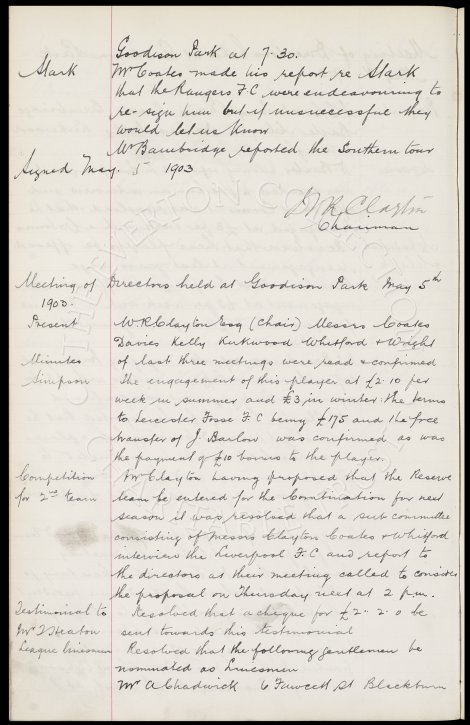 Goodison Park at 7.30.
Stark Mr Coates made his report re Stark
that the Rangers F.C. were endeavouring to
re-sign him but if unsuccessful they
would let us know
Mr Bainbridge reported the Southern tour
Signed May. 5 1903
W R Clayton
Chairman
Meeting of Directors held at Goodison Park May 5th
1903.
Present W.R Clayton Esq (Chair) Messrs Coates
Davies Kelly Kirkwood Whitford & Wright
Minutes of last three meetings were read & confirmed
Simpson The engagement of this player at £2.10 per
week in summer and £3 in winter: the terms
to Leicester Fosse F.C being £175 and the free
transfer of J. Barlow was confirmed as was
the payment of £10 bonus to the player.
Competition Mr Clayton having proposed that the Reserve
for 2nd team team be entered for the Combination for next
season it was resolved that a sub committee
consisting of Messrs Clayton Coates & Whitford
interview the Liverpool F.C and report to
the directors at their meeting called to consider
the proposal on Thursday next at 2 p.m.
Testimonial to Resolved that a cheque for £2..2.0 be
Mr Heaton sent towards this testimonial
League Linesmen Resolved that the following gentlemen be
nominated as Linesmen
Mr A Chadwick 6 Fawcett St Blackburn